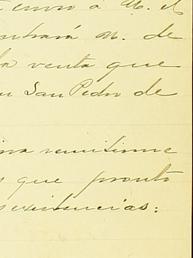 envío a M. el
ntrará M. de
la venta que
en San Pedro de
remitirme
s que pronto
existencias: